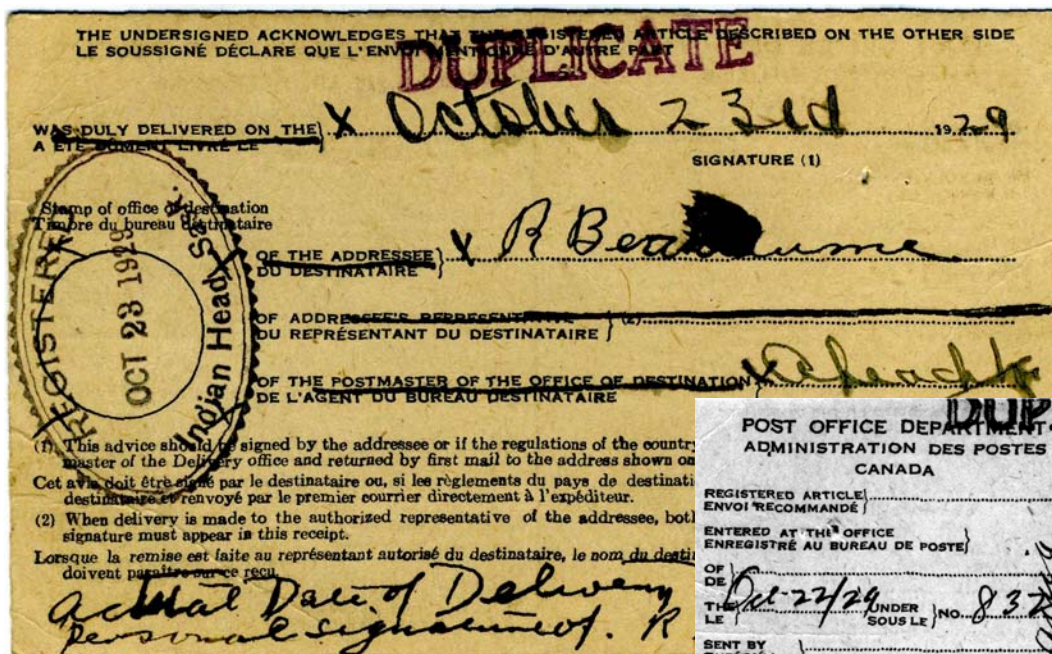 THE UNDERSIGNED ACKNOWLEDGES THAT THE REGISTERED ARTICLE DESCRIBED ON THE OTHER SIDE
LE SOUSSIGNÉ DÉCLARE QUE L'ENVOI MENTIONNÉ D'AUTRE PART
DUPLICATE
WAS DULY DELIVERED ON THE } X October 23rd 1929
A ÉTÉ DÛMENT LIVRÉ LE
SIGNATURE (1)
Stamp of office of destination
Timbre du bureau destinataire
REGISTERED
OCT 23 1929
Indian Head, Sask.
OF THE ADDRESSEE } X R Beaume
DU DESTINATAIRE
OF ADDRESSEE'S REPRESENTATIVE } (2)
DU REPRÉSENTANT DU DESTINATAIRE
OF THE POSTMASTER OF THE OFFICE OF DESTINATION X
DE L'AGENT DU BUREAU DESTINATAIRE
(1) This advice should be signed by the addressee or if the regulations of the country
master of the Delivery office and returned by first mail to the address shown on
Cet avis doit être signé par le destinataire ou, si les règlements du pays de destinati
destinataire et renvoyé par le premier courrier directement à l'expéditeur.
(2) When delivery is made to the authorized representative of the addressee, both
signature must appear in this receipt.
Lorsque la remise est faite au représentant autorisé du destinataire, le nom du destin
doivent paraître sur ce reçu.
actual Date of Delivery
personal signature of. R
DUP
POST OFFICE DEPARTMENT
ADMINISTRATION DES POSTES
CANADA
REGISTERED ARTICLE
ENVOI RECOMMANDÉ
ENTERED AT THE OFFICE
ENREGISTRÉ AU BUREAU DE POSTE
OF
DE
THE Oct-22/29 UNDER No. 832
LE SOUS LE
SENT BY